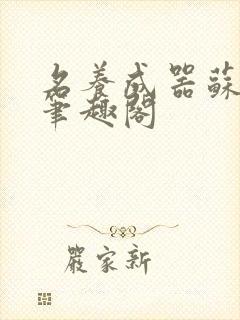 名養成器蘇
筆趣閣
嚴家新